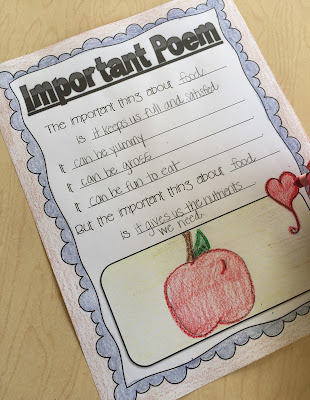 Important Poem
The important thing about food
is it keeps us full and satisfied
It can be yummy.
It can be gross.
It can be fun to eat.
But the important thing about food
is it gives us the nutrients
we need.